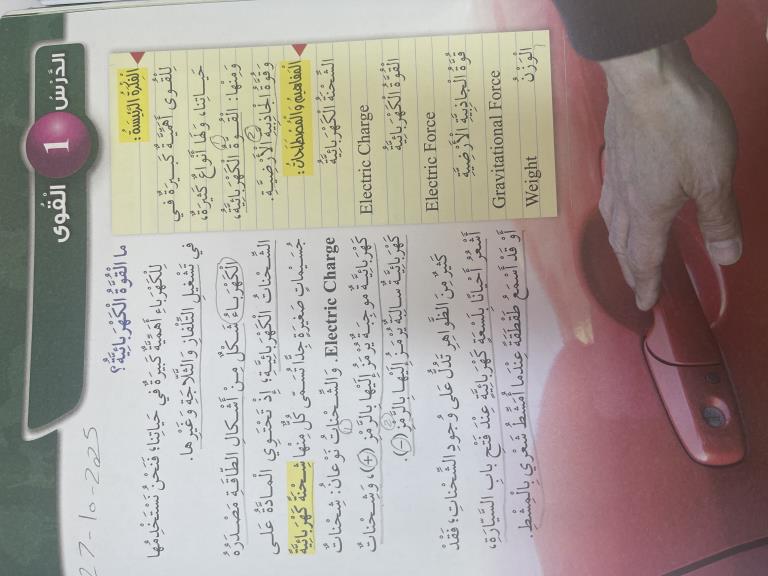 الدَّرْسُ 1
القُوى
الْفِكْرَةُ الرَّئيسَةُ:
لِلْقُوى أَهَمِّيَّةٌ كَبيرَةٌ في
حَياتِنا، وَلَها أَنْواعٌ كَثيرَةٌ،
وَمِنْها: الْقُوَّةُ الْكَهْرَبائِيَّةُ،
وَقُوَّةُ الْجاذِبِيَّةِ الْأَرْضِيَّةِ.
الْمَفاهيمُ وَالْمُصْطَلَحاتُ:
الشِّحْنَةُ الْكَهْرَبائِيَّةُ
Electric Charge
الْقُوَّةُ الْكَهْرَبائِيَّةُ
Electric Force
قُوَّةُ الْجاذِبِيَّةِ الْأَرْضِيَّةِ
Gravitational Force
الْوَزْنُ
Weight
27-10-2025
ما الْقُوَّةُ الْكَهْرَبائِيَّةُ؟
لِلْكَهْرَباءِ أَهَمِّيَّةٌ كَبيرَةٌ في حَياتِنا؛ فَنَحْنُ نَسْتَخْدِمُها
في تَشْغيلِ التِّلْفازِ وَالثَّلّاجَةِ وَغَيْرِها.
الْكَهْرَباءُ شَكْلٌ مِنْ أَشْكالِ الطّاقَةِ مَصْدَرُهُ
الشِّحْناتُ الْكَهْرَبائِيَّةُ؛ إِذْ تَحْتَوي الْمادَّةُ عَلى
جُسَيْماتٍ صَغيرَةٍ جِدًّا تُسَمّى كُلٌّ مِنْها شِحْنَةً كَهْرَبائِيَّةً
Electric Charge. وَالشِّحْناتُ نَوْعانِ: شِحْناتٌ
كَهْرَبائِيَّةٌ موجَبَةٌ يُرْمَزُ إِلَيْها بِالرَّمْزِ (+)، وَشِحْناتٌ
كَهْرَبائِيَّةٌ سالِبَةٌ يُرْمَزُ إِلَيْها بِالرَّمْزِ (−).
كَثيرٌ مِنَ الظَّواهِرِ تَدُلُّ عَلى وُجودِ الشِّحْناتِ؛ فَقَدْ
أَشْعُرُ أَحْيانًا بِلَسْعَةٍ كَهْرَبائِيَّةٍ عِنْدَ فَتْحِ بابِ السَّيّارَةِ،
أَوْ قَدْ أَسْمَعُ طَقْطَقَةً عِنْدَما أُمَشِّطُ شَعْري بِالْمِشْطِ.